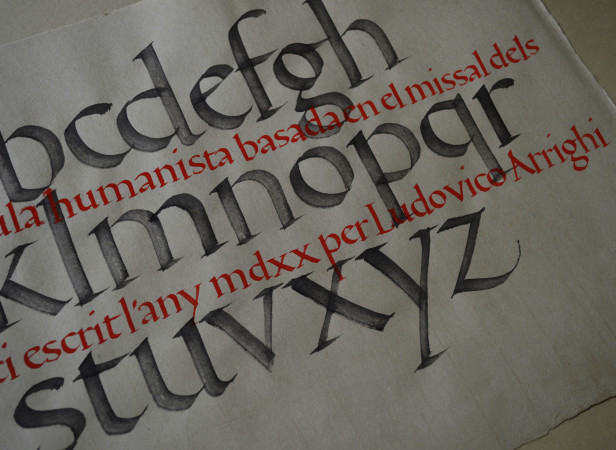 bcdefgh
humanista basada en el missal dels
klmnopqr
escrit l'any mdxx per Ludovico Arrighi
stuvxyz